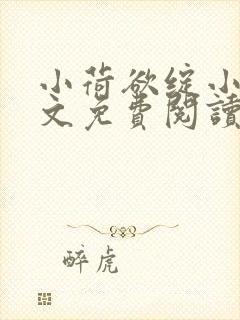 小荷欲綻小
文免費閱讀
醉虎